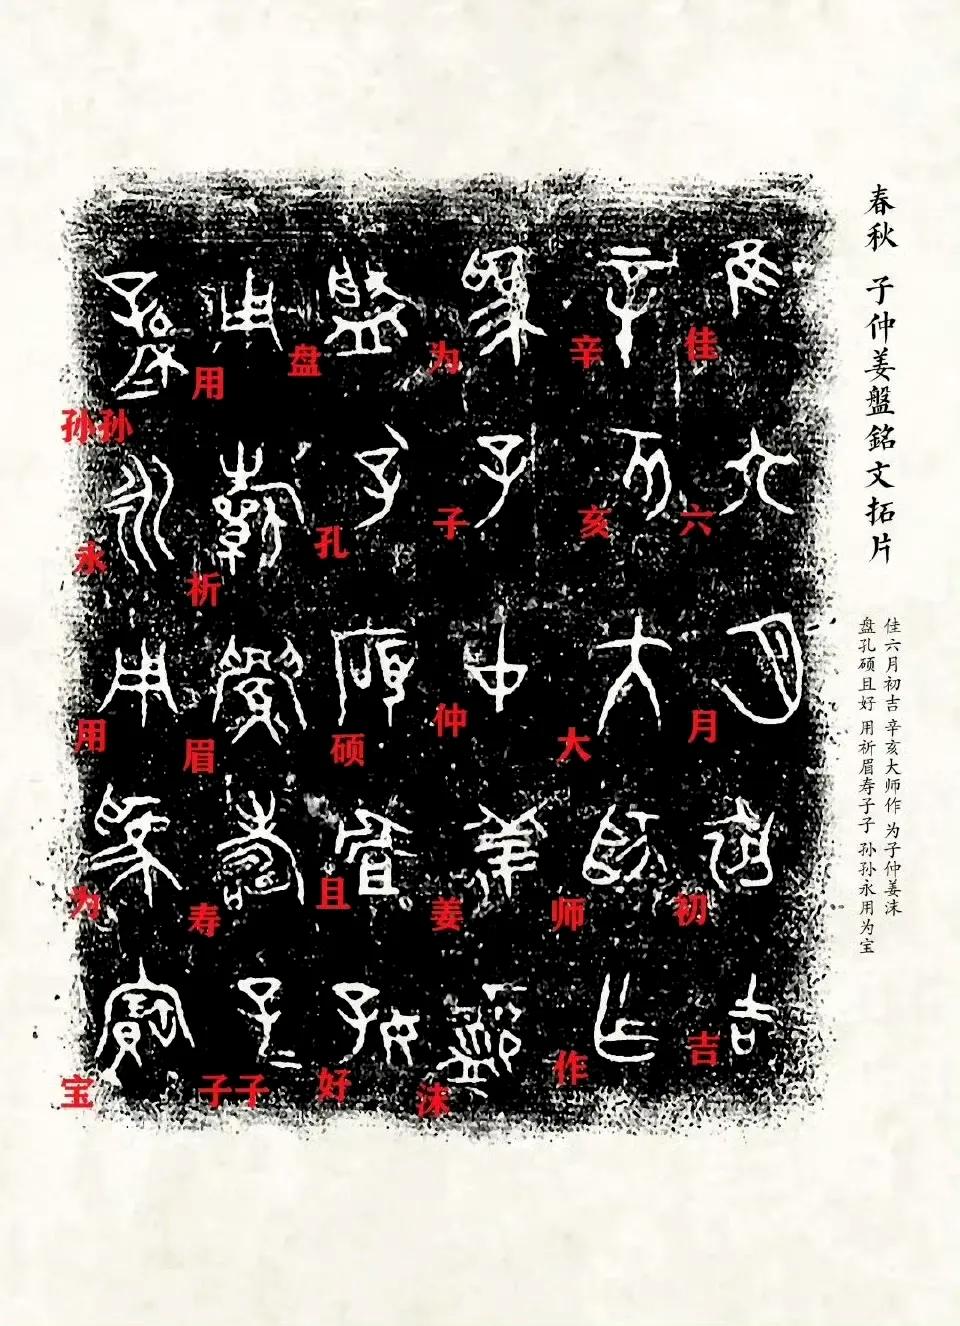 春秋 子仲姜盤銘文拓片
佳六月初吉 辛亥大师作 为子仲姜沫
盘孔硕且好 用祈眉寿子子 孙孙永用为宝
佳六月初吉
辛亥大师作
为子仲姜沫
盘孔硕且好
用祈眉寿子子
孙孙永用为宝